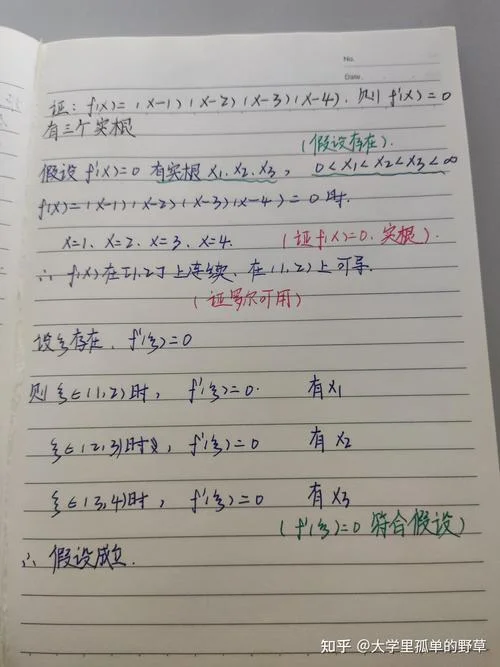 No.
Date.
证: f(x)=(x-1)(x-2)(x-3)(x-4). 则 f'(x)=0
有三个实根
(假设存在)
假设 f'(x)=0 有实根 x₁、x₂、x₃, 0<x₁<x₂<x₃<∞
f(x)=(x-1)(x-2)(x-3)(x-4)=0时.
x=1、x=2、x=3、x=4. (证f(x)=0、实根).
∴ f(x)在[1,2]上连续、在(1,2)上可导.
(证罗尔可用)
设ξ存在、f'(ξ)=0
则ξ∈(1,2)时, f'(ξ)=0. 有x₁
ξ∈(2,3)时, f'(ξ)=0 有x₂
ξ∈(3,4)时, f'(ξ)=0 有x₃
(f'(ξ)=0 符合假设)
∴ 假设成立.
知乎 @大学里孤单的野草